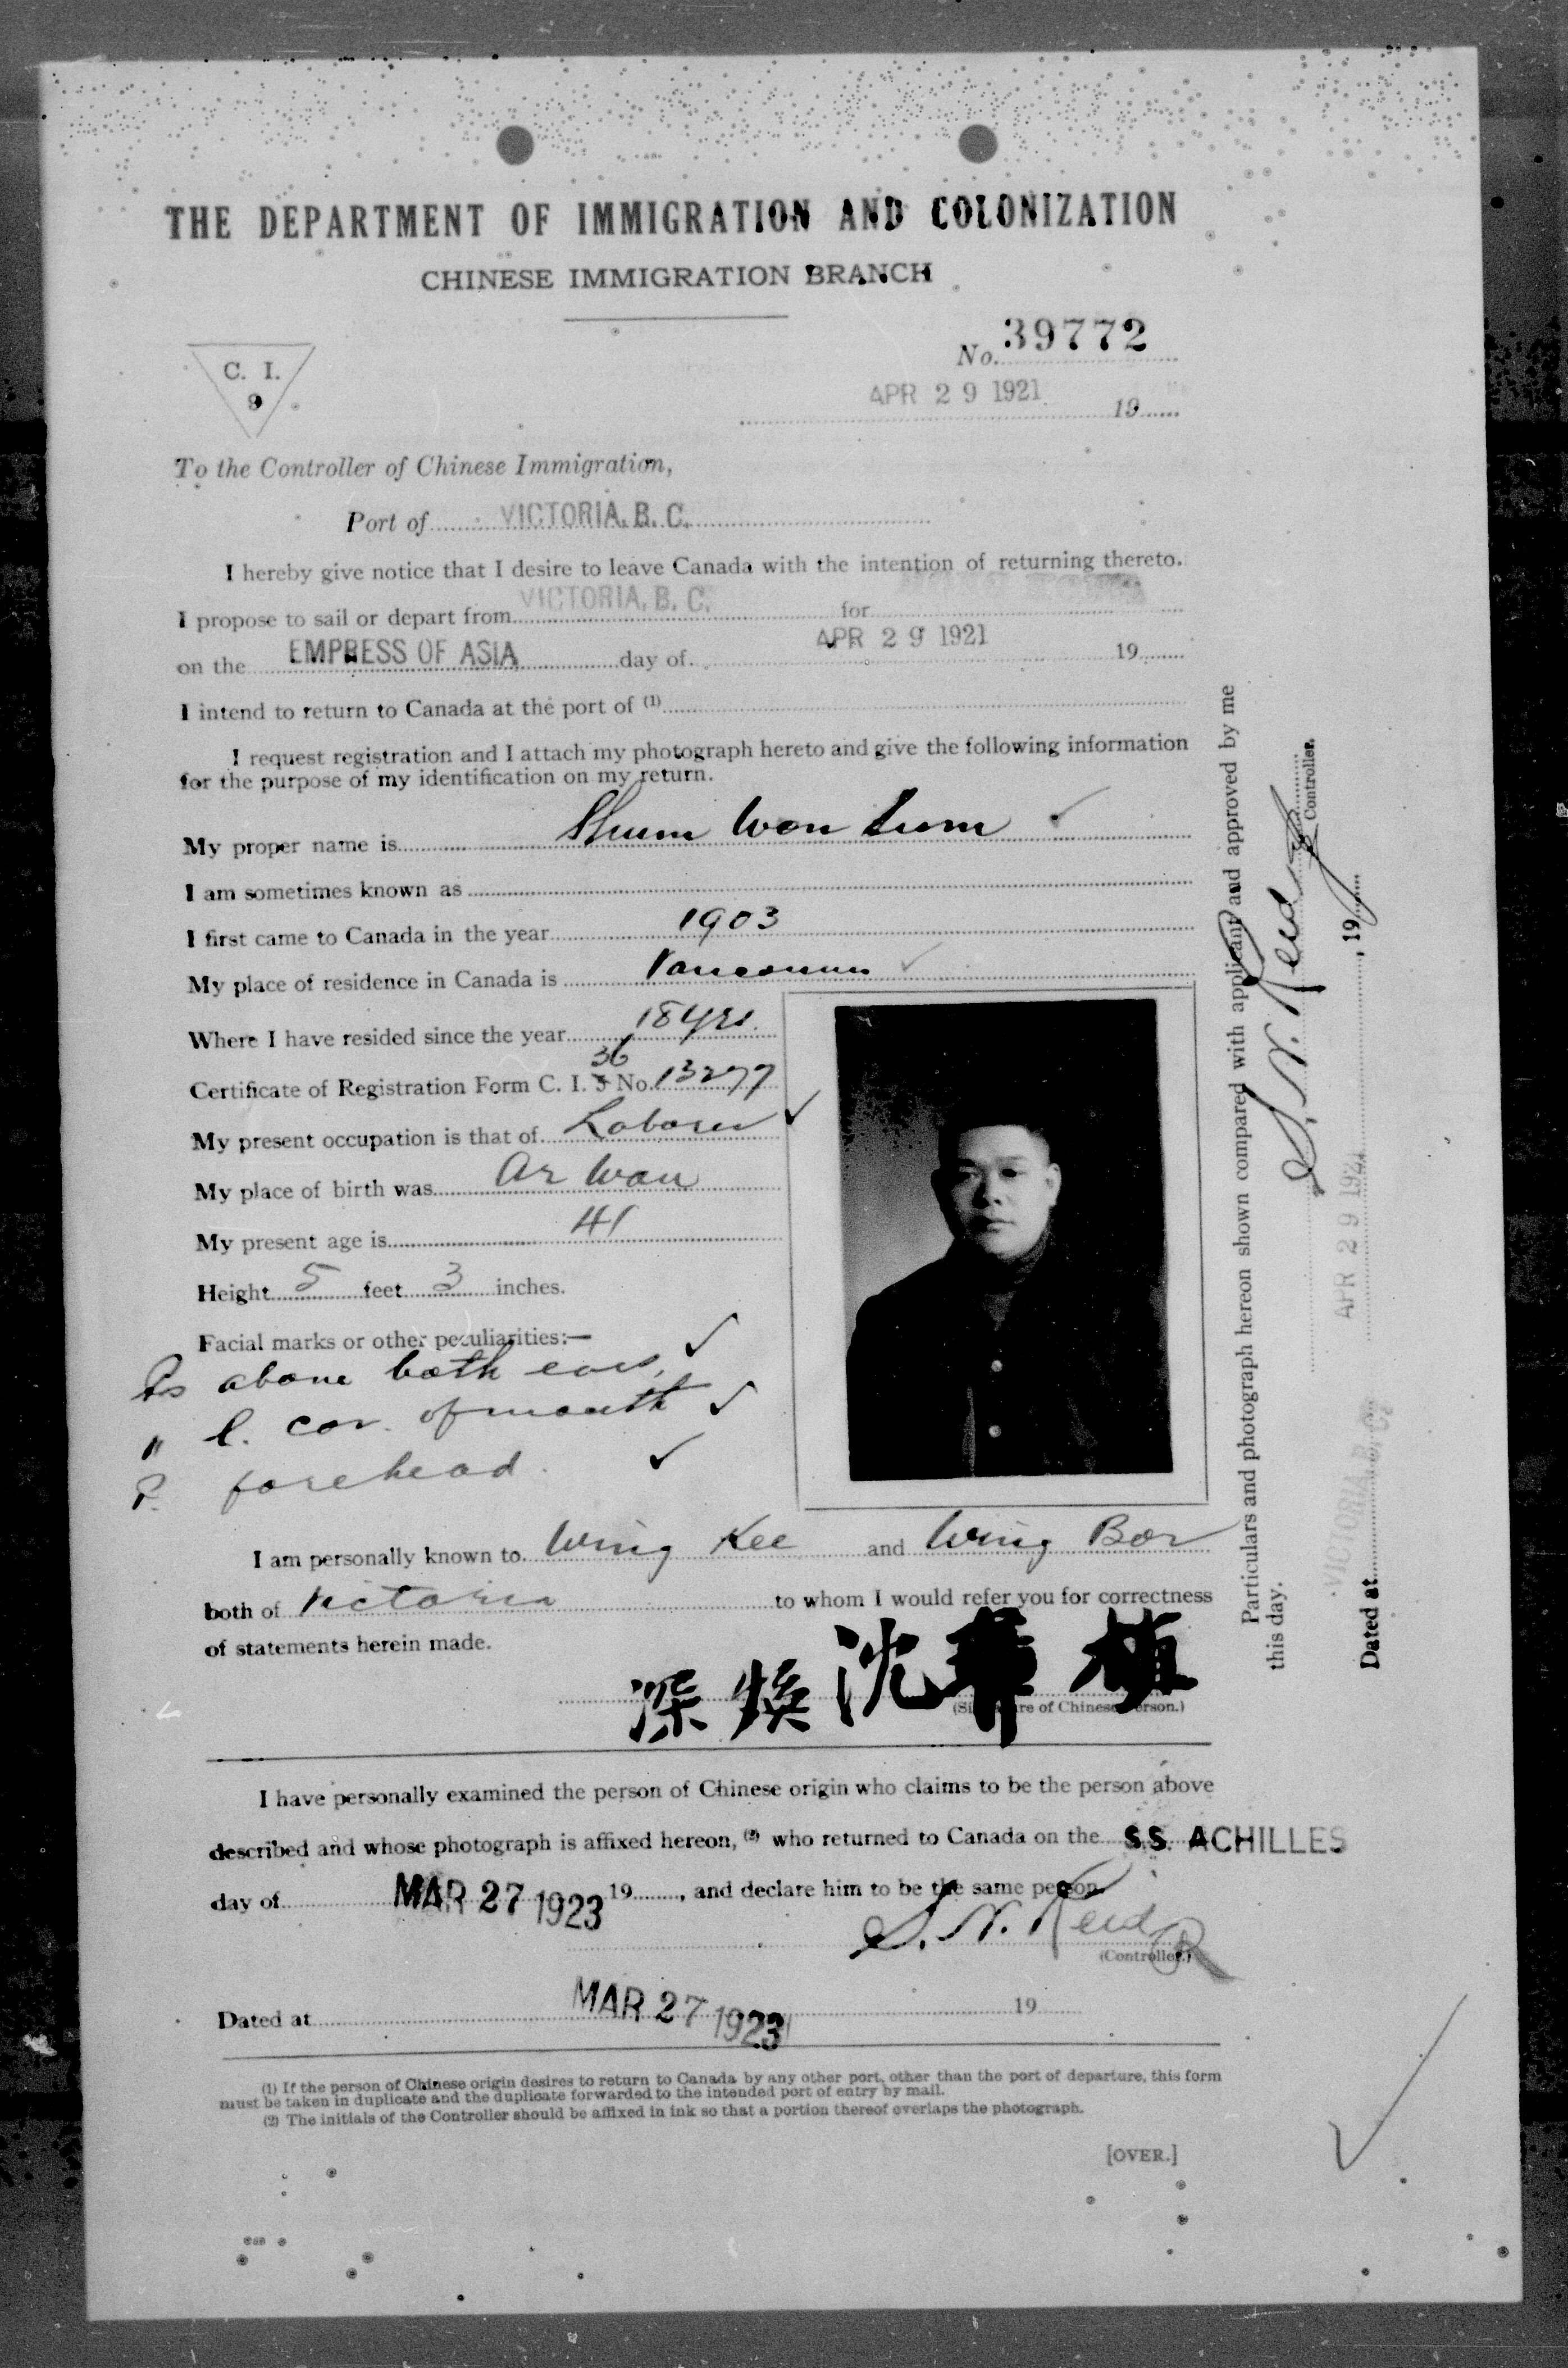 THE DEPARTMENT OF IMMIGRATION AND COLONIZATION
CHINESE IMMIGRATION BRANCH
C. I.
9
No. 39772
APR 29 1921 19
To the Controller of Chinese Immigration,
Port of VICTORIA, B. C.
I hereby give notice that I desire to leave Canada with the intention of returning thereto.
I propose to sail or depart from VICTORIA, B. C. for
on the EMPRESS OF ASIA day of APR 29 1921 19
I intend to return to Canada at the port of (1)
I request registration and I attach my photograph hereto and give the following information
for the purpose of my identification on my return.
My proper name is Shum Won Sum
I am sometimes known as
I first came to Canada in the year 1903
My place of residence in Canada is Vancouver
Where I have resided since the year 18 yrs.
Certificate of Registration Form C. I. 5 36 No. 13277
My present occupation is that of Laborer
My place of birth was Ar Wan
My present age is 41
Height 5 feet 3 inches.
Facial marks or other peculiarities:—
Ps above both ears,
" l. cor. of mouth
P. forehead.
I am personally known to Wing Kee and Wing Bor
both of Victoria to whom I would refer you for correctness
of statements herein made.
深 煥 沈 華 植
(Signature of Chinese Person.)
I have personally examined the person of Chinese origin who claims to be the person above
described and whose photograph is affixed hereon, (2) who returned to Canada on the S.S. ACHILLES
day of MAR 27 1923 19, and declare him to be the same person.
S. N. Reid
(Controller.)
Dated at MAR 27 1923 19
(1) If the person of Chinese origin desires to return to Canada by any other port, other than the port of departure, this form
must be taken in duplicate and the duplicate forwarded to the intended port of entry by mail.
(2) The initials of the Controller should be affixed in ink so that a portion thereof overlaps the photograph.
[OVER.]
Particulars and photograph hereon shown compared with applicant and approved by me
this day.
S. N. Reid
Controller.
Dated at VICTORIA, B. C. APR 29 1921, 19